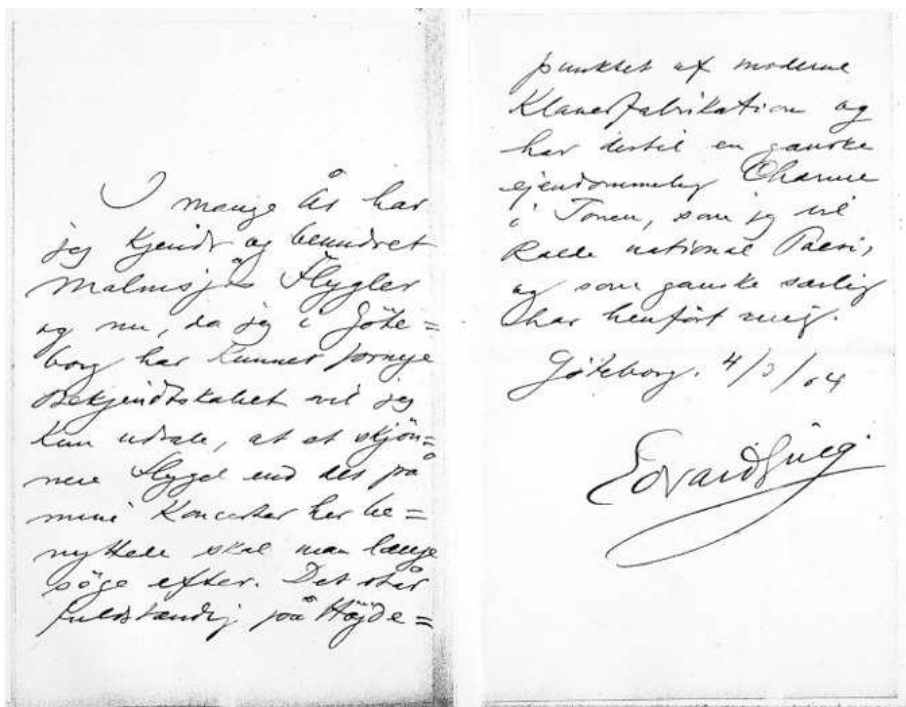 I mange År har
jeg kjendt og beundret
Malmsjös Flygler
og nu, da jeg i Göte=
borg har kunnet fornye
Bekjendtskabet vil jeg
kun udtale, at et skjön=
nere Flygel end det på
mine Koncerter her be=
nyttede skal man længe
söge efter. Det står
fuldstændig på Højde=
punktet af moderne
Klaverfabrikation og
har dertil en ganske
ejendommelig Charme
i Tonen, som jeg vil
kalde national Poesi,
og som ganske særlig
har henfört mig.
Göteborg. 4/3/04
Edvard Grieg